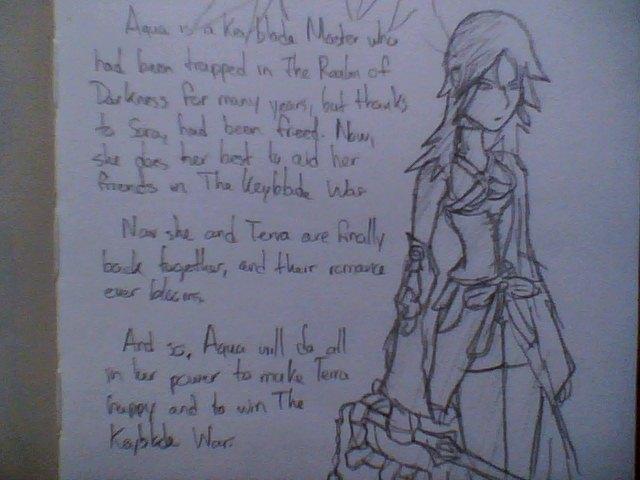 Aqua is a Keyblade Master who
had been trapped in The Realm of
Darkness for many years, but thanks
to Sora, had been freed. Now,
she does her best to aid her
friends in The Keyblade War.
Now she and Terra are finally
back together, and their romance
ever blooms.
And so, Aqua will do all
in her power to make Terra
happy and to win The
Keyblade War.